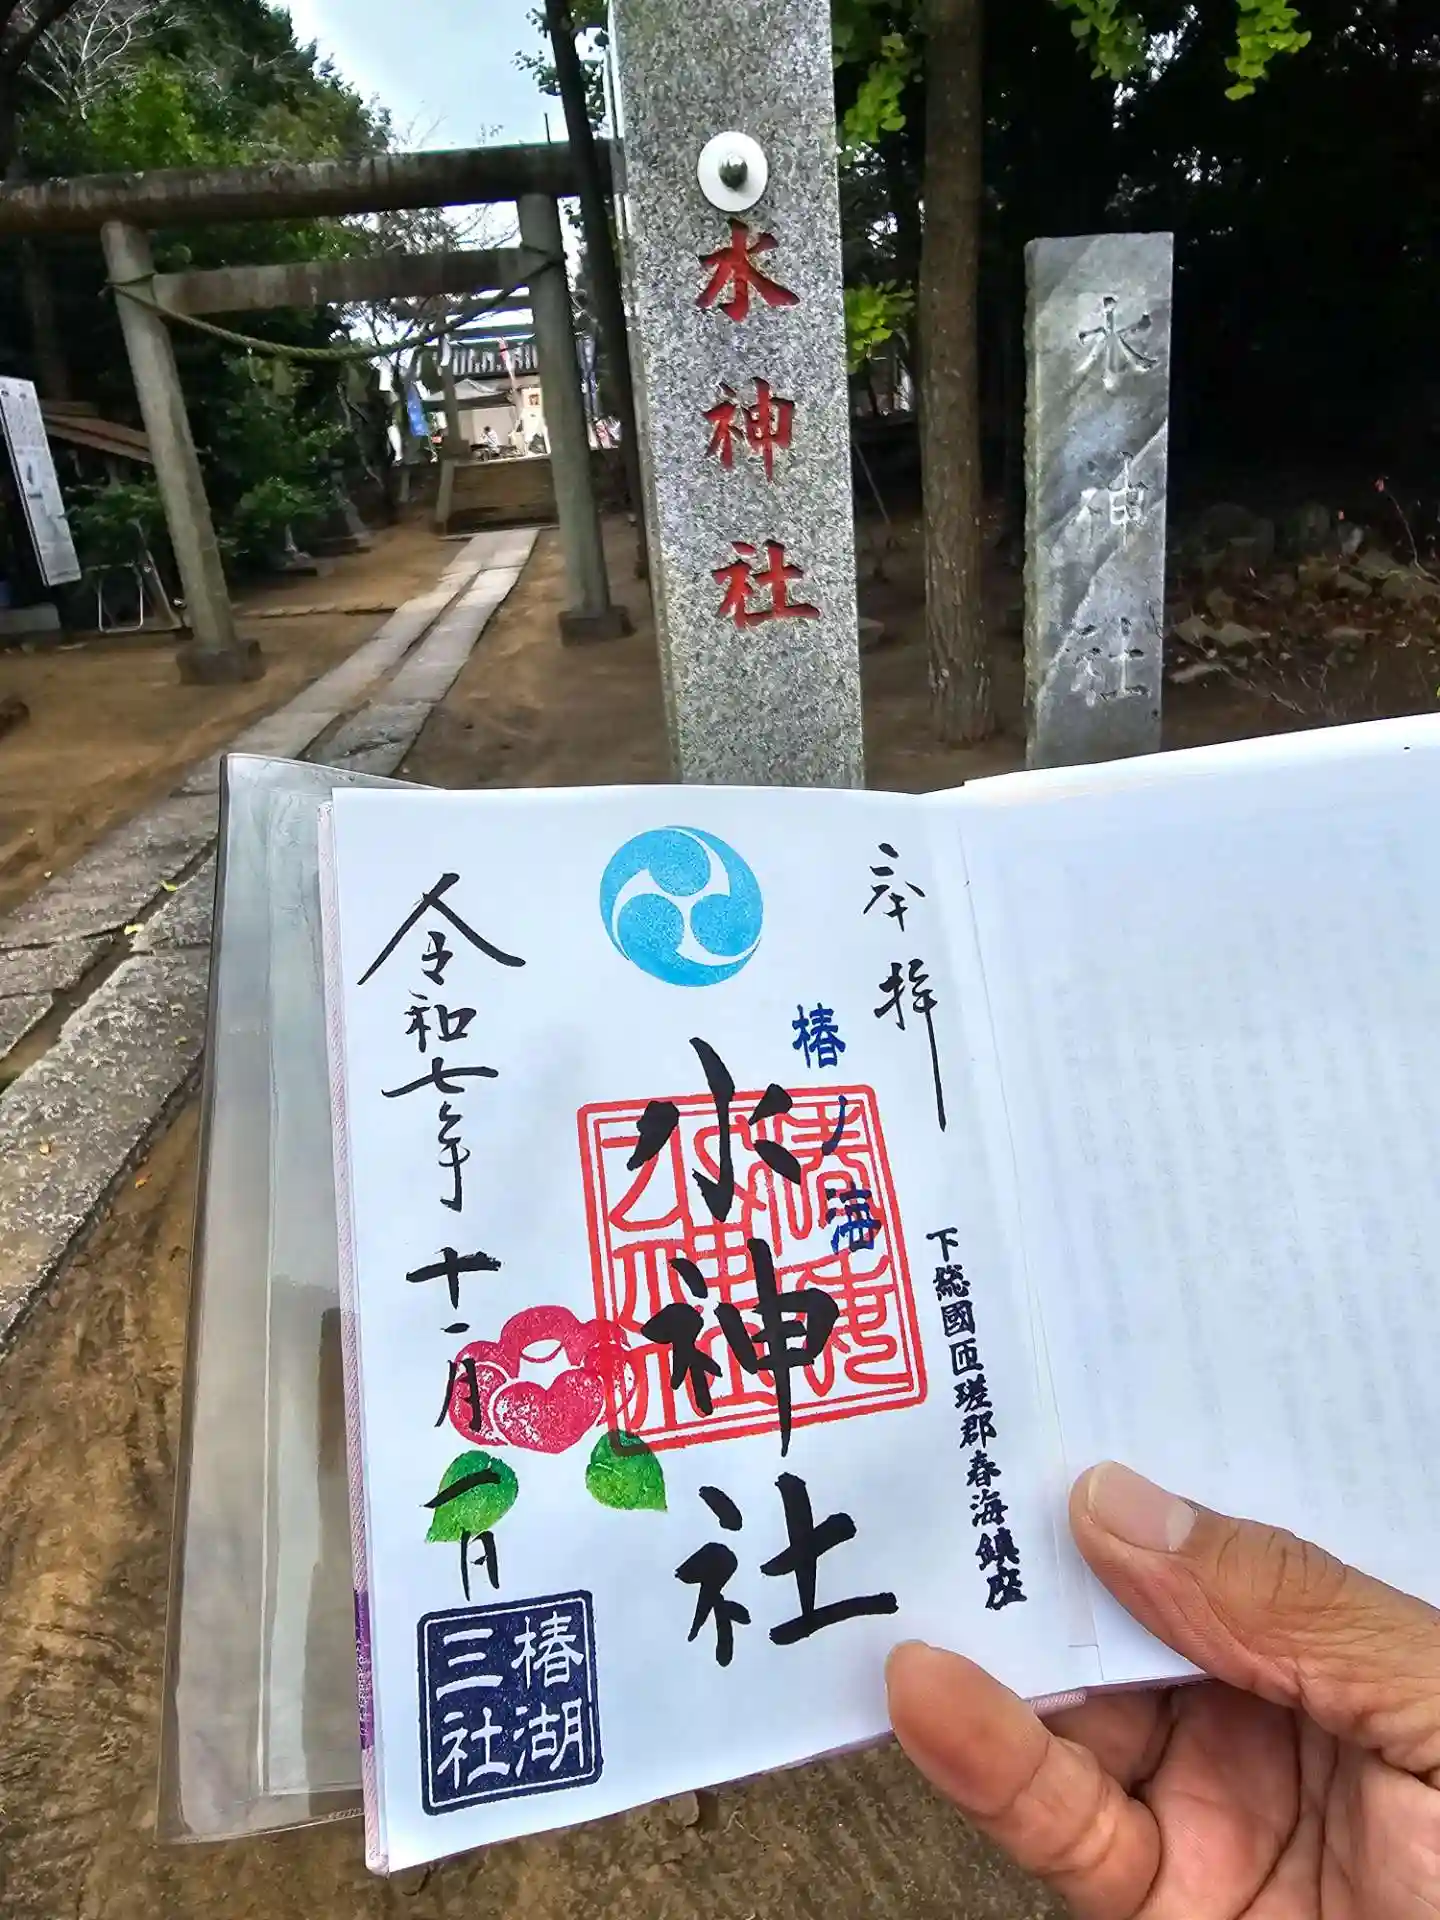 水神社
水神社
奉拝
下総國匝瑳郡春海鎮座
椿ノ海
水神社
令和七年十一月一日
椿湖
三社